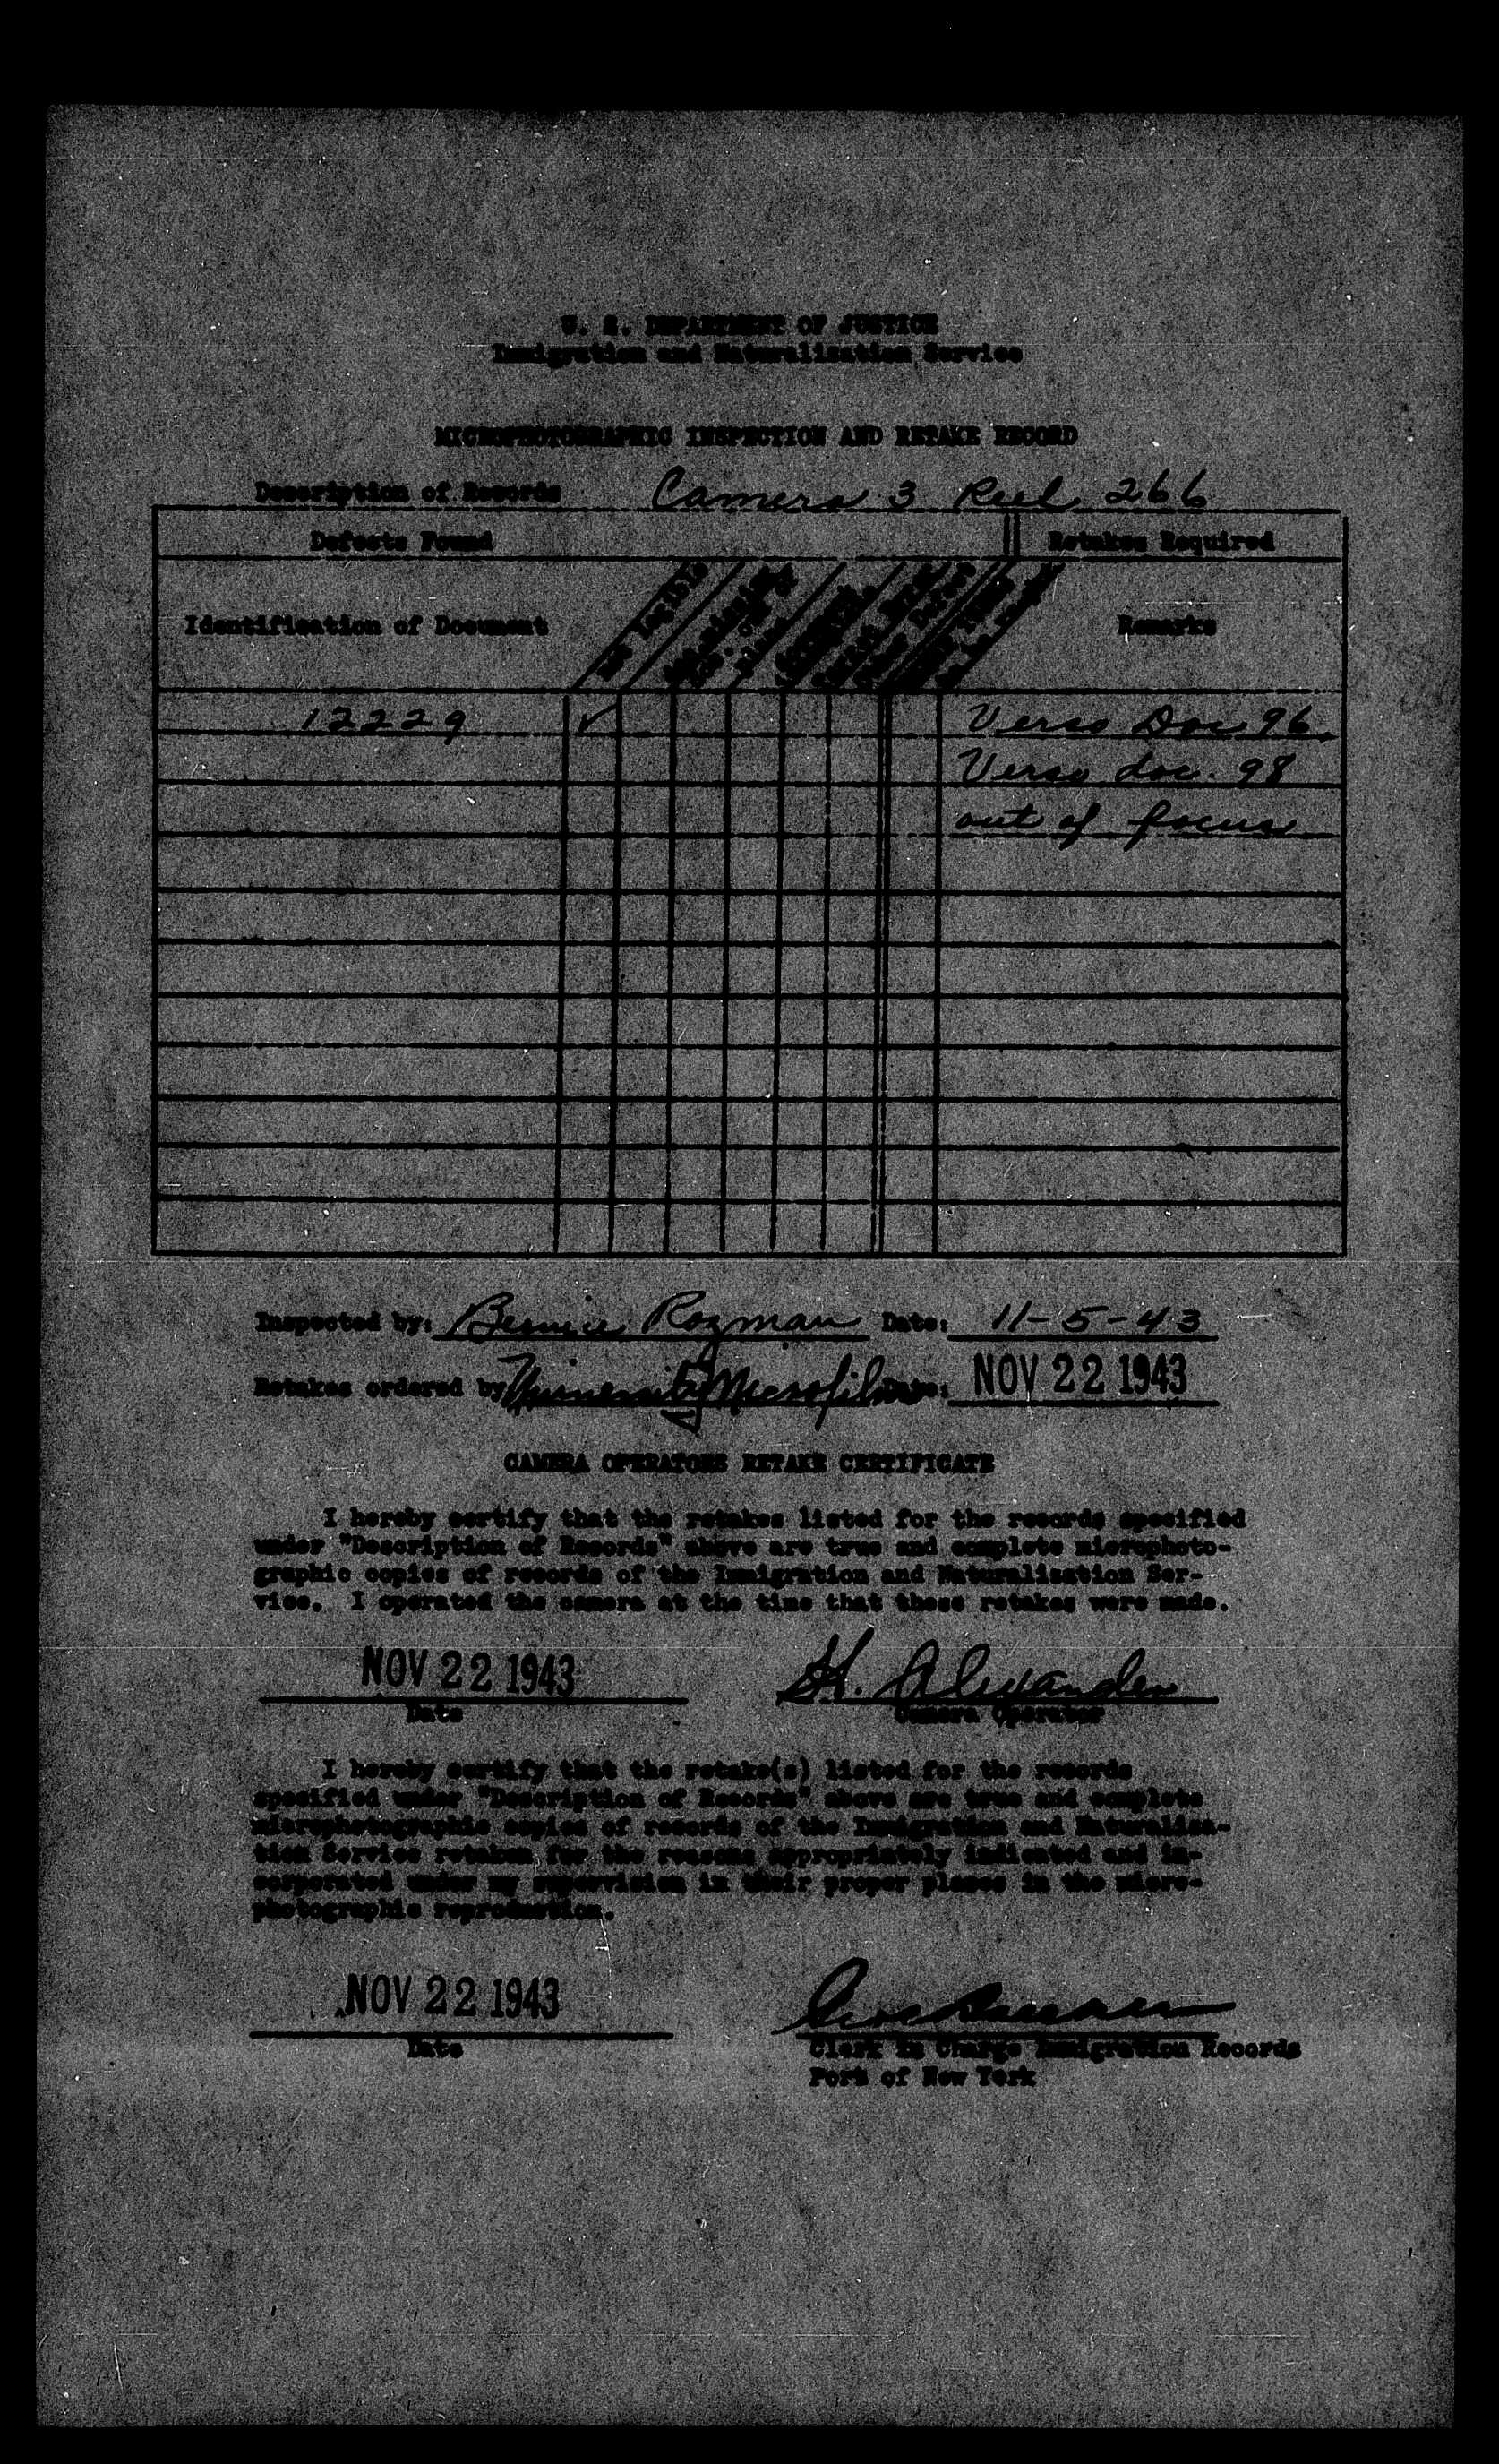 U. S. DEPARTMENT OF JUSTICE
Immigration and Naturalization Service
MICROPHOTOGRAPHIC INSPECTION AND RETAKE RECORD
Description of Records Camera 3 Reel 266
Defects Found Retakes Required
Identification of Document Not Legible Remarks
12229 ✓ Verso Doc 96
Verso doc. 98
out of focus
Inspected by: Bernice Rozman Date: 11-5-43
Retakes ordered by University Microfilms Date: NOV 22 1943
CAMERA OPERATORS RETAKE CERTIFICATE
I hereby certify that the retakes listed for the records specified
under "Description of Records" above are true and complete microphoto-
graphic copies of records of the Immigration and Naturalization Ser-
vice. I operated the camera at the time that these retakes were made.
NOV 22 1943 H. Alexander
Date Camera Operator
I hereby certify that the retake(s) listed for the records
specified under "Description of Records" above are true and complete
microphotographic copies of records of the Immigration and Naturaliza-
tion Service retaken for the reasons appropriately indicated and in-
corporated under my supervision in their proper places in the micro-
photographic reproduction.
NOV 22 1943
Date Clerk in Charge Immigration Records
Port of New York